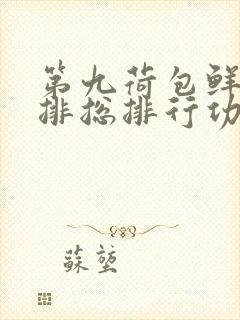 第九荷包鲜
排总排行功
蘇堃